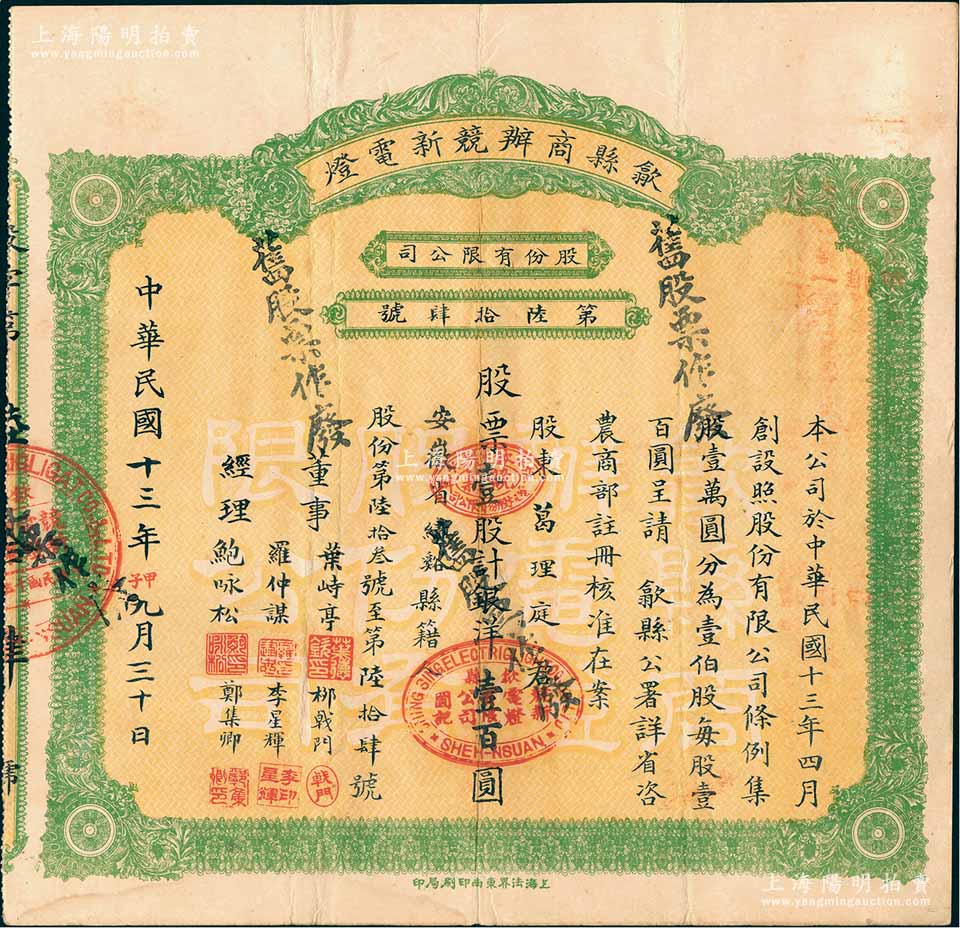 上海陽明拍賣
www.yangmingauction.com
歙縣商辦競新電燈
股份有限公司
第陸拾肆號
本公司於中華民國十三年四月
創設照股份有限公司條例集
股壹萬圓分為壹伯股每股壹
百圓呈請 歙縣公署詳省咨
農商部註冊核准在案
股東葛理庭
股票壹股計銀洋壹百圓
安徽省績谿縣籍
股份第陸拾叁號至第陸拾肆號
董事
葉峙亭
柳戰門
羅仲謀
李星輝
經理
鮑咏松
鄭集卿
中華民國十三年甲子九月三十日
舊股票作廢
舊股票作廢
SHEH-HSUAN
戰門
李印星輝
上海法界東南印刷局印
上海陽明拍賣
www.yangmingauction.com
上海陽明拍賣
www.yangmingauction.com